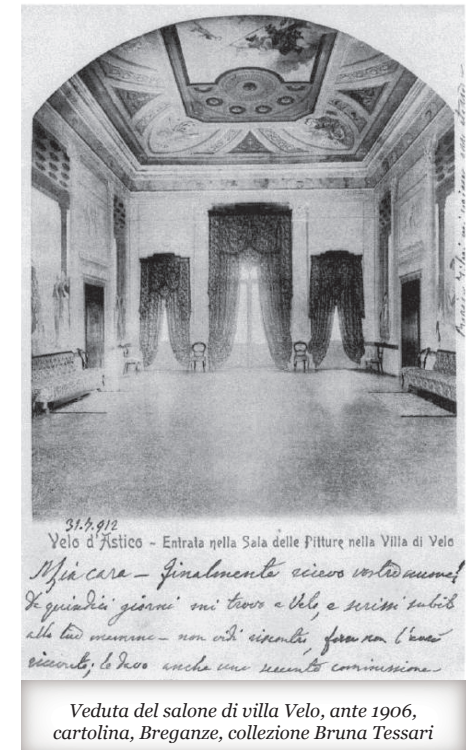 31.7.912
Velo d'Astico – Entrata nella Sala delle Pitture nella Villa di Velo
Mia cara – finalmente ricevo vostre nuove!
Da quindici giorni mi trovo a Velo, e scrissi subito
alla tua mamma – non vidi riscontro, forse non l'avrà
ricevuto; le davo anche una commissione –
Veduta del salone di villa Velo, ante 1906,
cartolina, Breganze, collezione Bruna Tessari